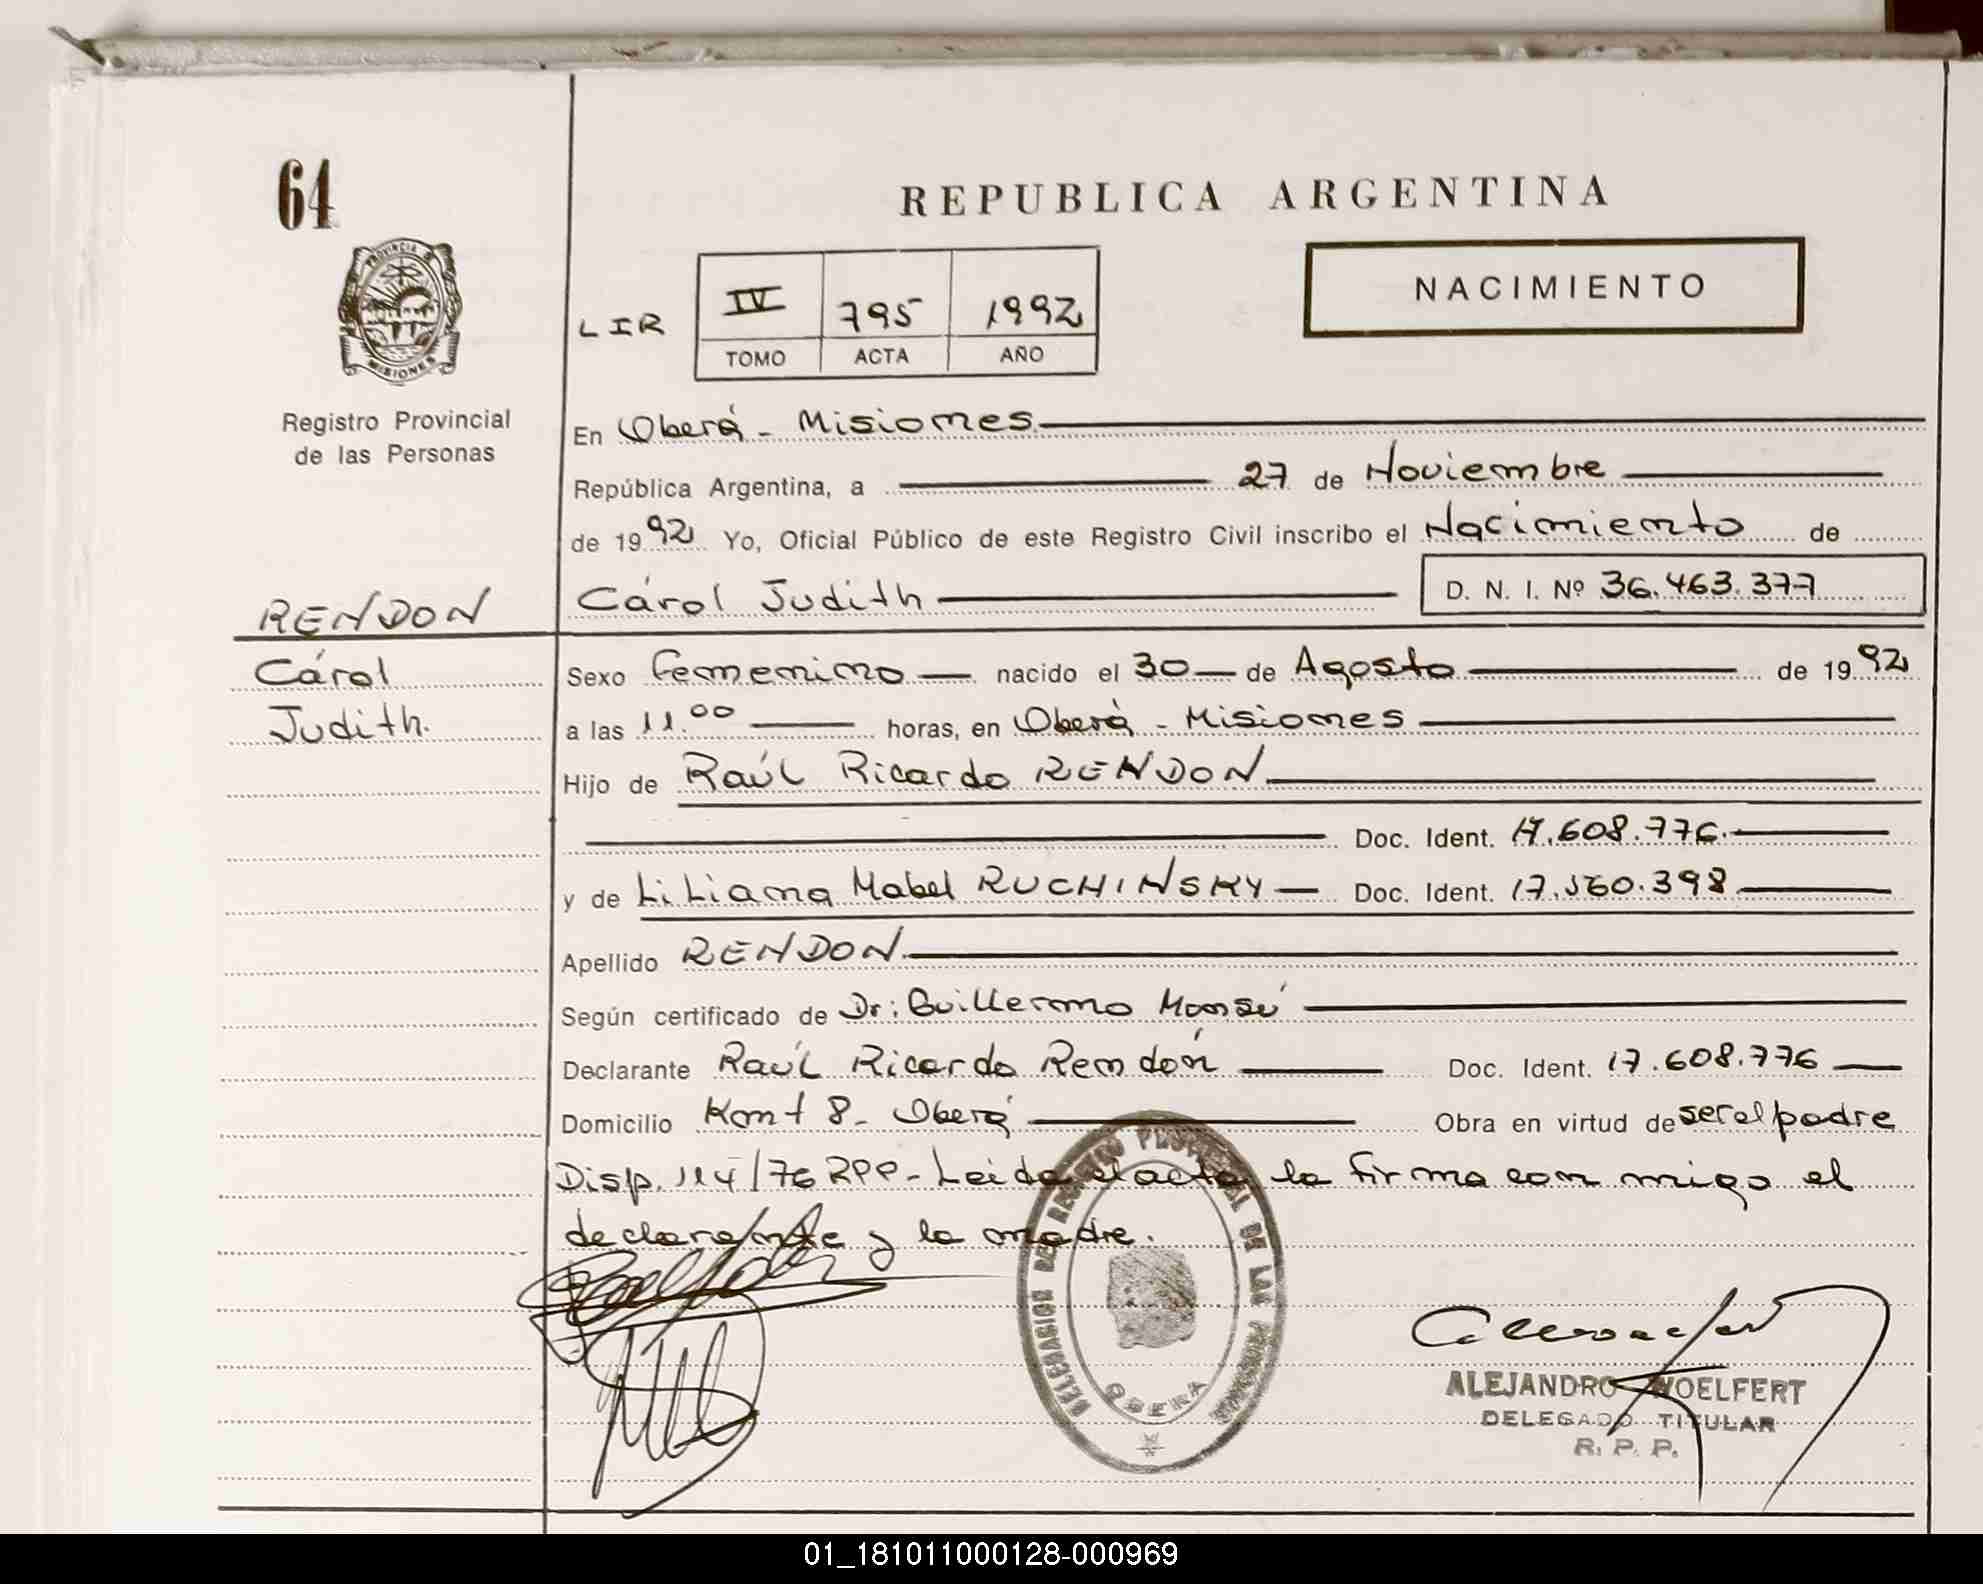 64
REPUBLICA ARGENTINA
PROVINCIA D
MISIONES
NACIMIENTO
LIR
IV 795 1992
TOMO ACTA AÑO
Registro Provincial
de las Personas
En Oberá - Misiones
República Argentina, a 27 de Noviembre
de 1992 Yo, Oficial Público de este Registro Civil inscribo el Nacimiento de
RENDON
Cárol Judith D. N. I. Nº 36.463.377
Cárol
Judith.
Sexo femenino nacido el 30 de Agosto de 1992
a las 11.00 horas, en Oberá - Misiones
Hijo de Raúl Ricardo RENDON
Doc. Ident. 17.608.776.
y de Liliana Mabel RUCHINSKY Doc. Ident. 17.560.398
Apellido RENDON
Según certificado de Dr: Guillermo
Declarante Raúl Ricardo Rendón Doc. Ident. 17.608.776
Domicilio 8 - Oberá Obra en virtud de ser el padre
Disp. 114/76 RPP - Leida el acta, la firma con migo el
declarante y la madre.
DELEGACION DEL REGISTRO PROVINCIAL DE LAS PERSONAS
OBERA
ALEJANDRO WOELFERT
DELEGADO TITULAR
R. P. P.
01_181011000128-000969